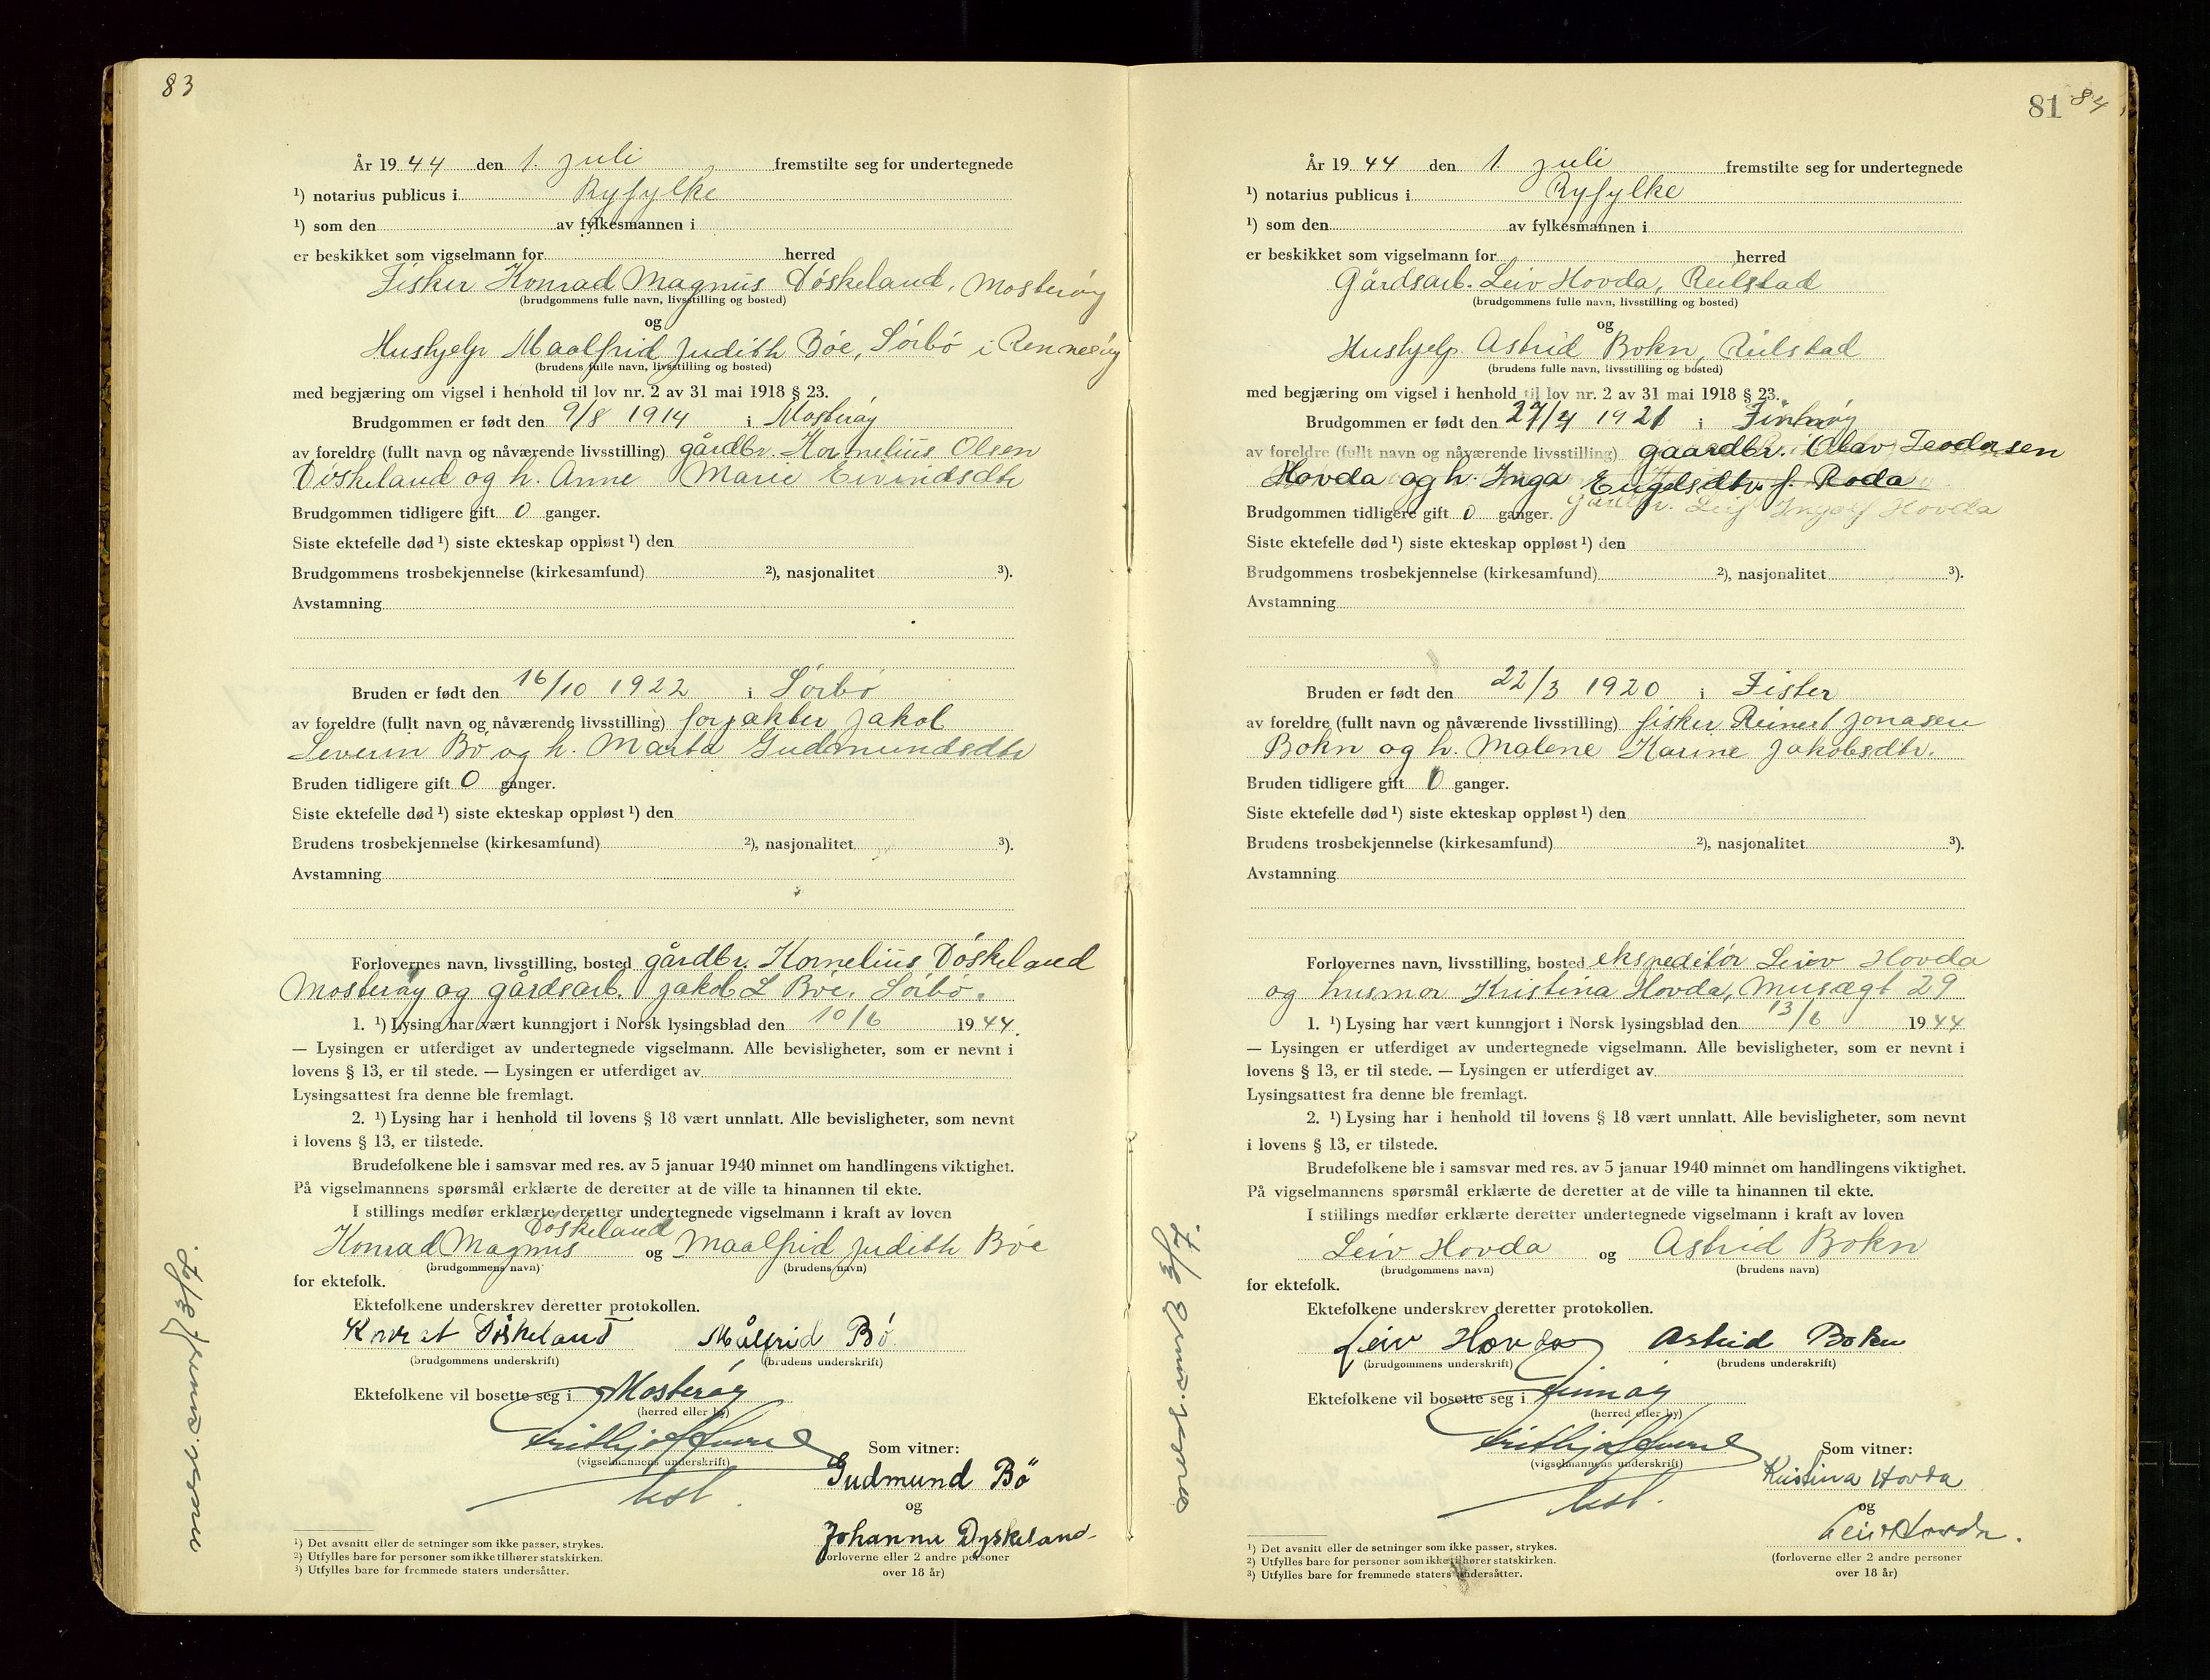 83
År 1944 den 1. juli fremstilte seg for undertegnede
¹) notarius publicus i Ryfylke
¹) som den av fylkesmannen i
er beskikket som vigselmann for herred
Fisker Konrad Magnus Döskeland, Mosterøy
(brudgommens fulle navn, livsstilling og bosted)
og
Hushjelp Maalfrid Judith Bøe, Sörbö i Rennesøy
(brudens fulle navn, livsstilling og bosted)
med begjæring om vigsel i henhold til lov nr. 2 av 31 mai 1918 § 23.
Brudgommen er født den 9/8 1914 i Mosterøy
av foreldre (fullt navn og nåværende livsstilling) gårdbr. Kornelius Olsen
Döskeland og h. Anne Marie Eivindsdtr
Brudgommen tidligere gift 0 ganger.
Siste ektefelle død ¹) siste ekteskap oppløst ¹) den
Brudgommens trosbekjennelse (kirkesamfund) ²), nasjonalitet ³).
Avstamning
Bruden er født den 16/10 1922 i Sörbö
av foreldre (fullt navn og nåværende livsstilling) forpakter Jakob
Severin Bö og h. Marta Gudmundsdtr
Bruden tidligere gift 0 ganger.
Siste ektefelle død ¹) siste ekteskap oppløst ¹) den
Brudens trosbekjennelse (kirkesamfund) ²), nasjonalitet ³).
Avstamning
Forlovernes navn, livsstilling, bosted gårdbr. Kornelius Döskeland
Mosterøy og gårdsarb. Jakob L Böe, Sörbö.
1. ¹) Lysing har vært kunngjort i Norsk lysingsblad den 10/6 1944.
— Lysingen er utferdiget av undertegnede vigselmann. Alle bevisligheter, som er nevnt i
lovens § 13, er til stede. — Lysingen er utferdiget av
Lysingsattest fra denne ble fremlagt.
2. ¹) Lysing har i henhold til lovens § 18 vært unnlatt. Alle bevisligheter, som nevnt
i lovens § 13, er tilstede.
Brudefolkene ble i samsvar med res. av 5 januar 1940 minnet om handlingens viktighet.
På vigselmannens spørsmål erklærte de deretter at de ville ta hinannen til ekte.
I stillings medfør erklærte deretter undertegnede vigselmann i kraft av loven
Döskeland
Konrad Magnus og Maalfrid Judith Böe
(brudgommens navn) (brudens navn)
for ektefolk.
Ektefolkene underskrev deretter protokollen.
Konrat Döskeland Målfrid Bö.
(brudgommens underskrift) (brudens underskrift)
Ektefolkene vil bosette seg i Mosterøy
(herred eller by)
Som vitner:
(vigselmannens underskrift)
Gudmund Bö
og
Johanne Dyskeland
(forloverne eller 2 andre personer
over 18 år)
¹) Det avsnitt eller de setninger som ikke passer, strykes.
²) Utfylles bare for personer som ikke tilhører statskirken.
³) Utfylles bare for fremmede staters undersåtter.
81 84
År 1944 den 1. juli fremstilte seg for undertegnede
¹) notarius publicus i Ryfylke
¹) som den av fylkesmannen i
er beskikket som vigselmann for herred
Gårdsarb. Leiv Hovda, Reilstad
(brudgommens fulle navn, livsstilling og bosted)
og
Hushjelp Astrid Bokn, Reilstad
(brudens fulle navn, livsstilling og bosted)
med begjæring om vigsel i henhold til lov nr. 2 av 31 mai 1918 § 23.
Brudgommen er født den 27/4 1921 i Finnøy
av foreldre (fullt navn og nåværende livsstilling) gaardbr. Olav Teodorsen
Hovda og h. Inga Engelsdtr. f. Roda
Brudgommen tidligere gift 0 ganger. gårdbr. Leif Ingolf Hovda
Siste ektefelle død ¹) siste ekteskap oppløst ¹) den
Brudgommens trosbekjennelse (kirkesamfund) ²), nasjonalitet ³).
Avstamning
Bruden er født den 22/3 1920 i Fister
av foreldre (fullt navn og nåværende livsstilling) fisker Reinert Jonasen
Bokn og h. Malene Karine Jakobsdtr.
Bruden tidligere gift 0 ganger.
Siste ektefelle død ¹) siste ekteskap oppløst ¹) den
Brudens trosbekjennelse (kirkesamfund) ²), nasjonalitet ³).
Avstamning
Forlovernes navn, livsstilling, bosted ekspeditör Leiv Hovda
og husmor Kristina Hovda, Musægt 29
1. ¹) Lysing har vært kunngjort i Norsk lysingsblad den 13/6 1944
— Lysingen er utferdiget av undertegnede vigselmann. Alle bevisligheter, som er nevnt i
lovens § 13, er til stede. — Lysingen er utferdiget av
Lysingsattest fra denne ble fremlagt.
2. ¹) Lysing har i henhold til lovens § 18 vært unnlatt. Alle bevisligheter, som nevnt
i lovens § 13, er tilstede.
Brudefolkene ble i samsvar med res. av 5 januar 1940 minnet om handlingens viktighet.
På vigselmannens spørsmål erklærte de deretter at de ville ta hinannen til ekte.
I stillings medfør erklærte deretter undertegnede vigselmann i kraft av loven
Leiv Hovda og Astrid Bokn
(brudgommens navn) (brudens navn)
for ektefolk.
Ektefolkene underskrev deretter protokollen.
Leiv Hovda Astrid Bokn
(brudgommens underskrift) (brudens underskrift)
Ektefolkene vil bosette seg i Finnøy
(herred eller by)
Som vitner:
(vigselmannens underskrift)
Kristina Hovda
og
Leiv Hovda.
(forloverne eller 2 andre personer
over 18 år)
¹) Det avsnitt eller de setninger som ikke passer, strykes.
²) Utfylles bare for personer som ikke tilhører statskirken.
³) Utfylles bare for fremmede staters undersåtter.